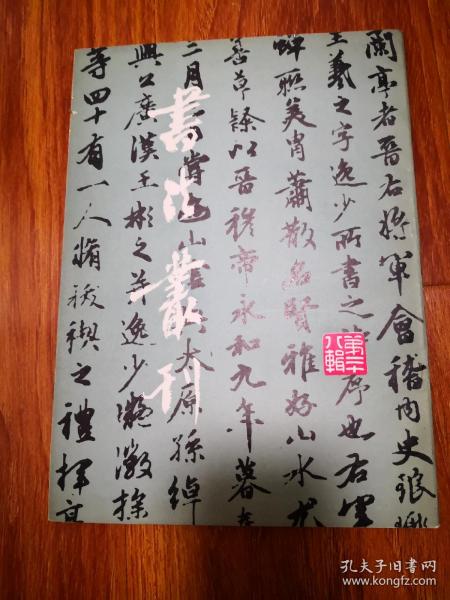 蘭亭者晉右将軍會稽内史琅
王羲之字逸少所書之序也右軍
蟬聯美胄蕭散名賢雅好山水尤
善草隸以晉穆帝永和九年暮春
三月嘗遊山太原孫綽
興公廣漢王彬之并逸少凝徽操
等四十有一人脩祓禊之禮揮毫
書法叢刊
第二十
八輯
孔夫子旧书网
www.kongfz.com